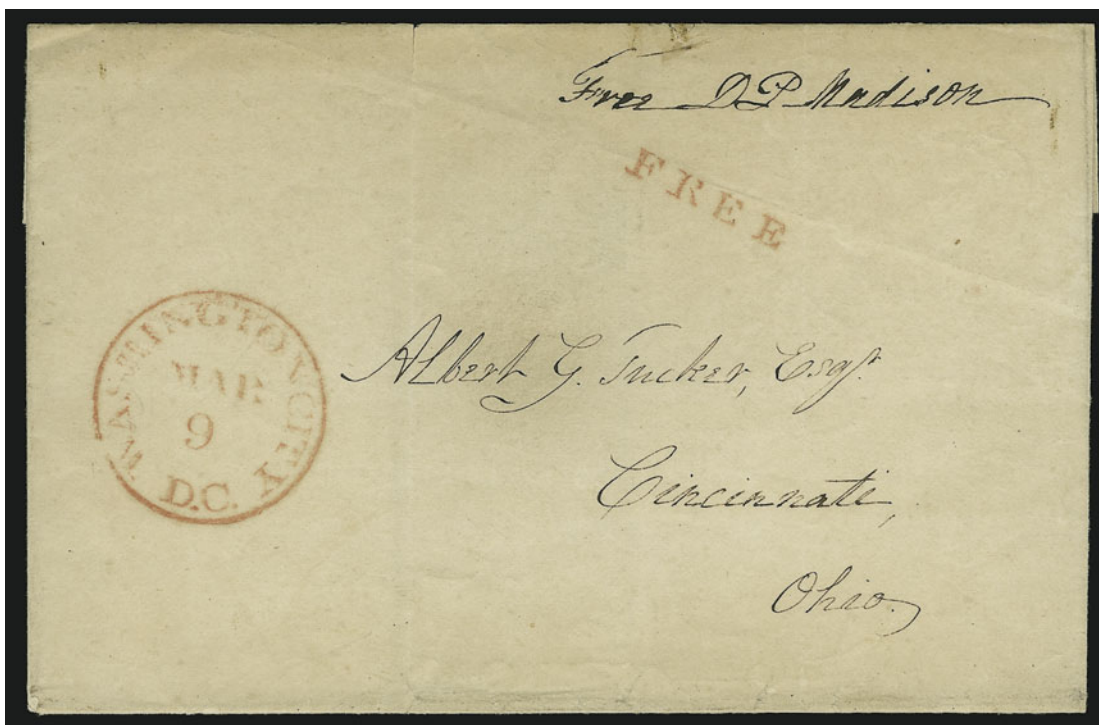 Free D P Madison
FREE
WASHINGTON CITY
MAR
9
D.C.
Albert G. Tucker, Esqr.
Cincinnati,
Ohio.